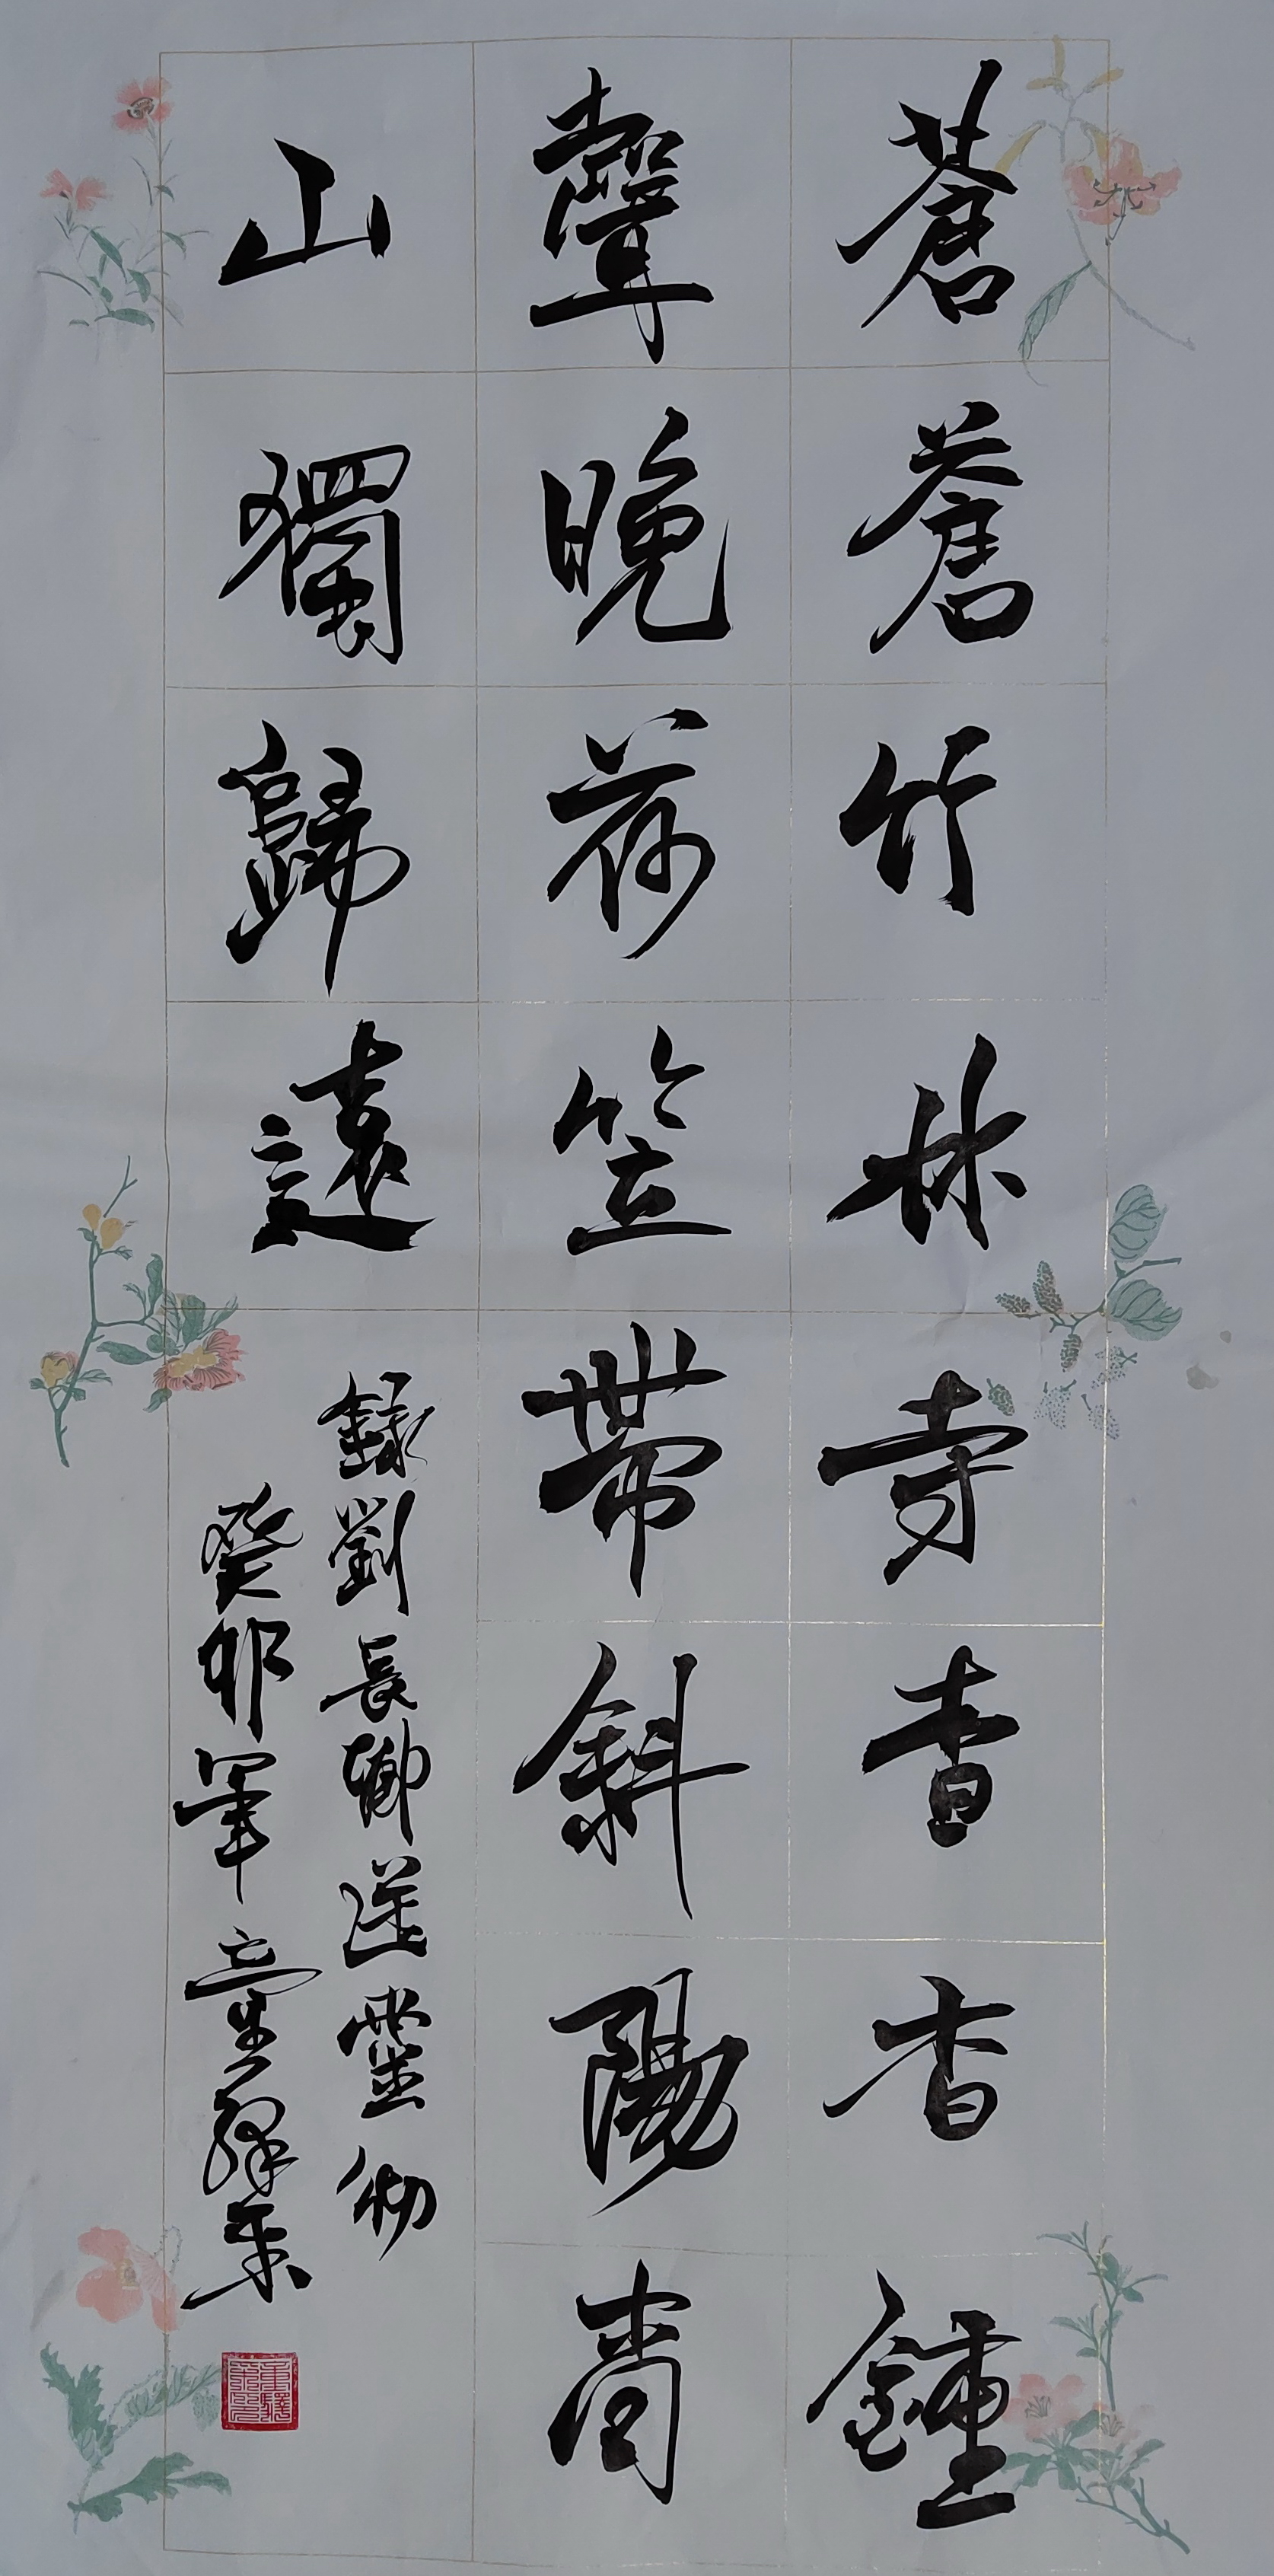 蒼蒼竹林寺杳杳鍾
聲晚荷笠帶斜陽青
山獨歸遠
錄劉長卿送靈彻
癸卯